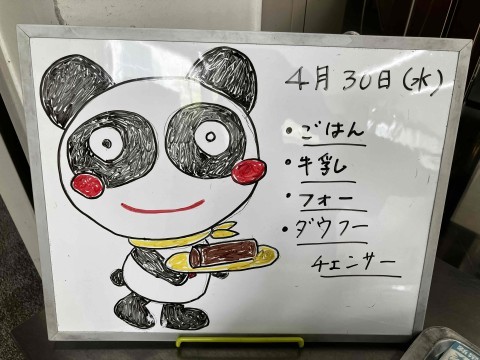 4月30日(水)
・ごはん
・牛乳
・フォー
・ダウフー
チェンサー